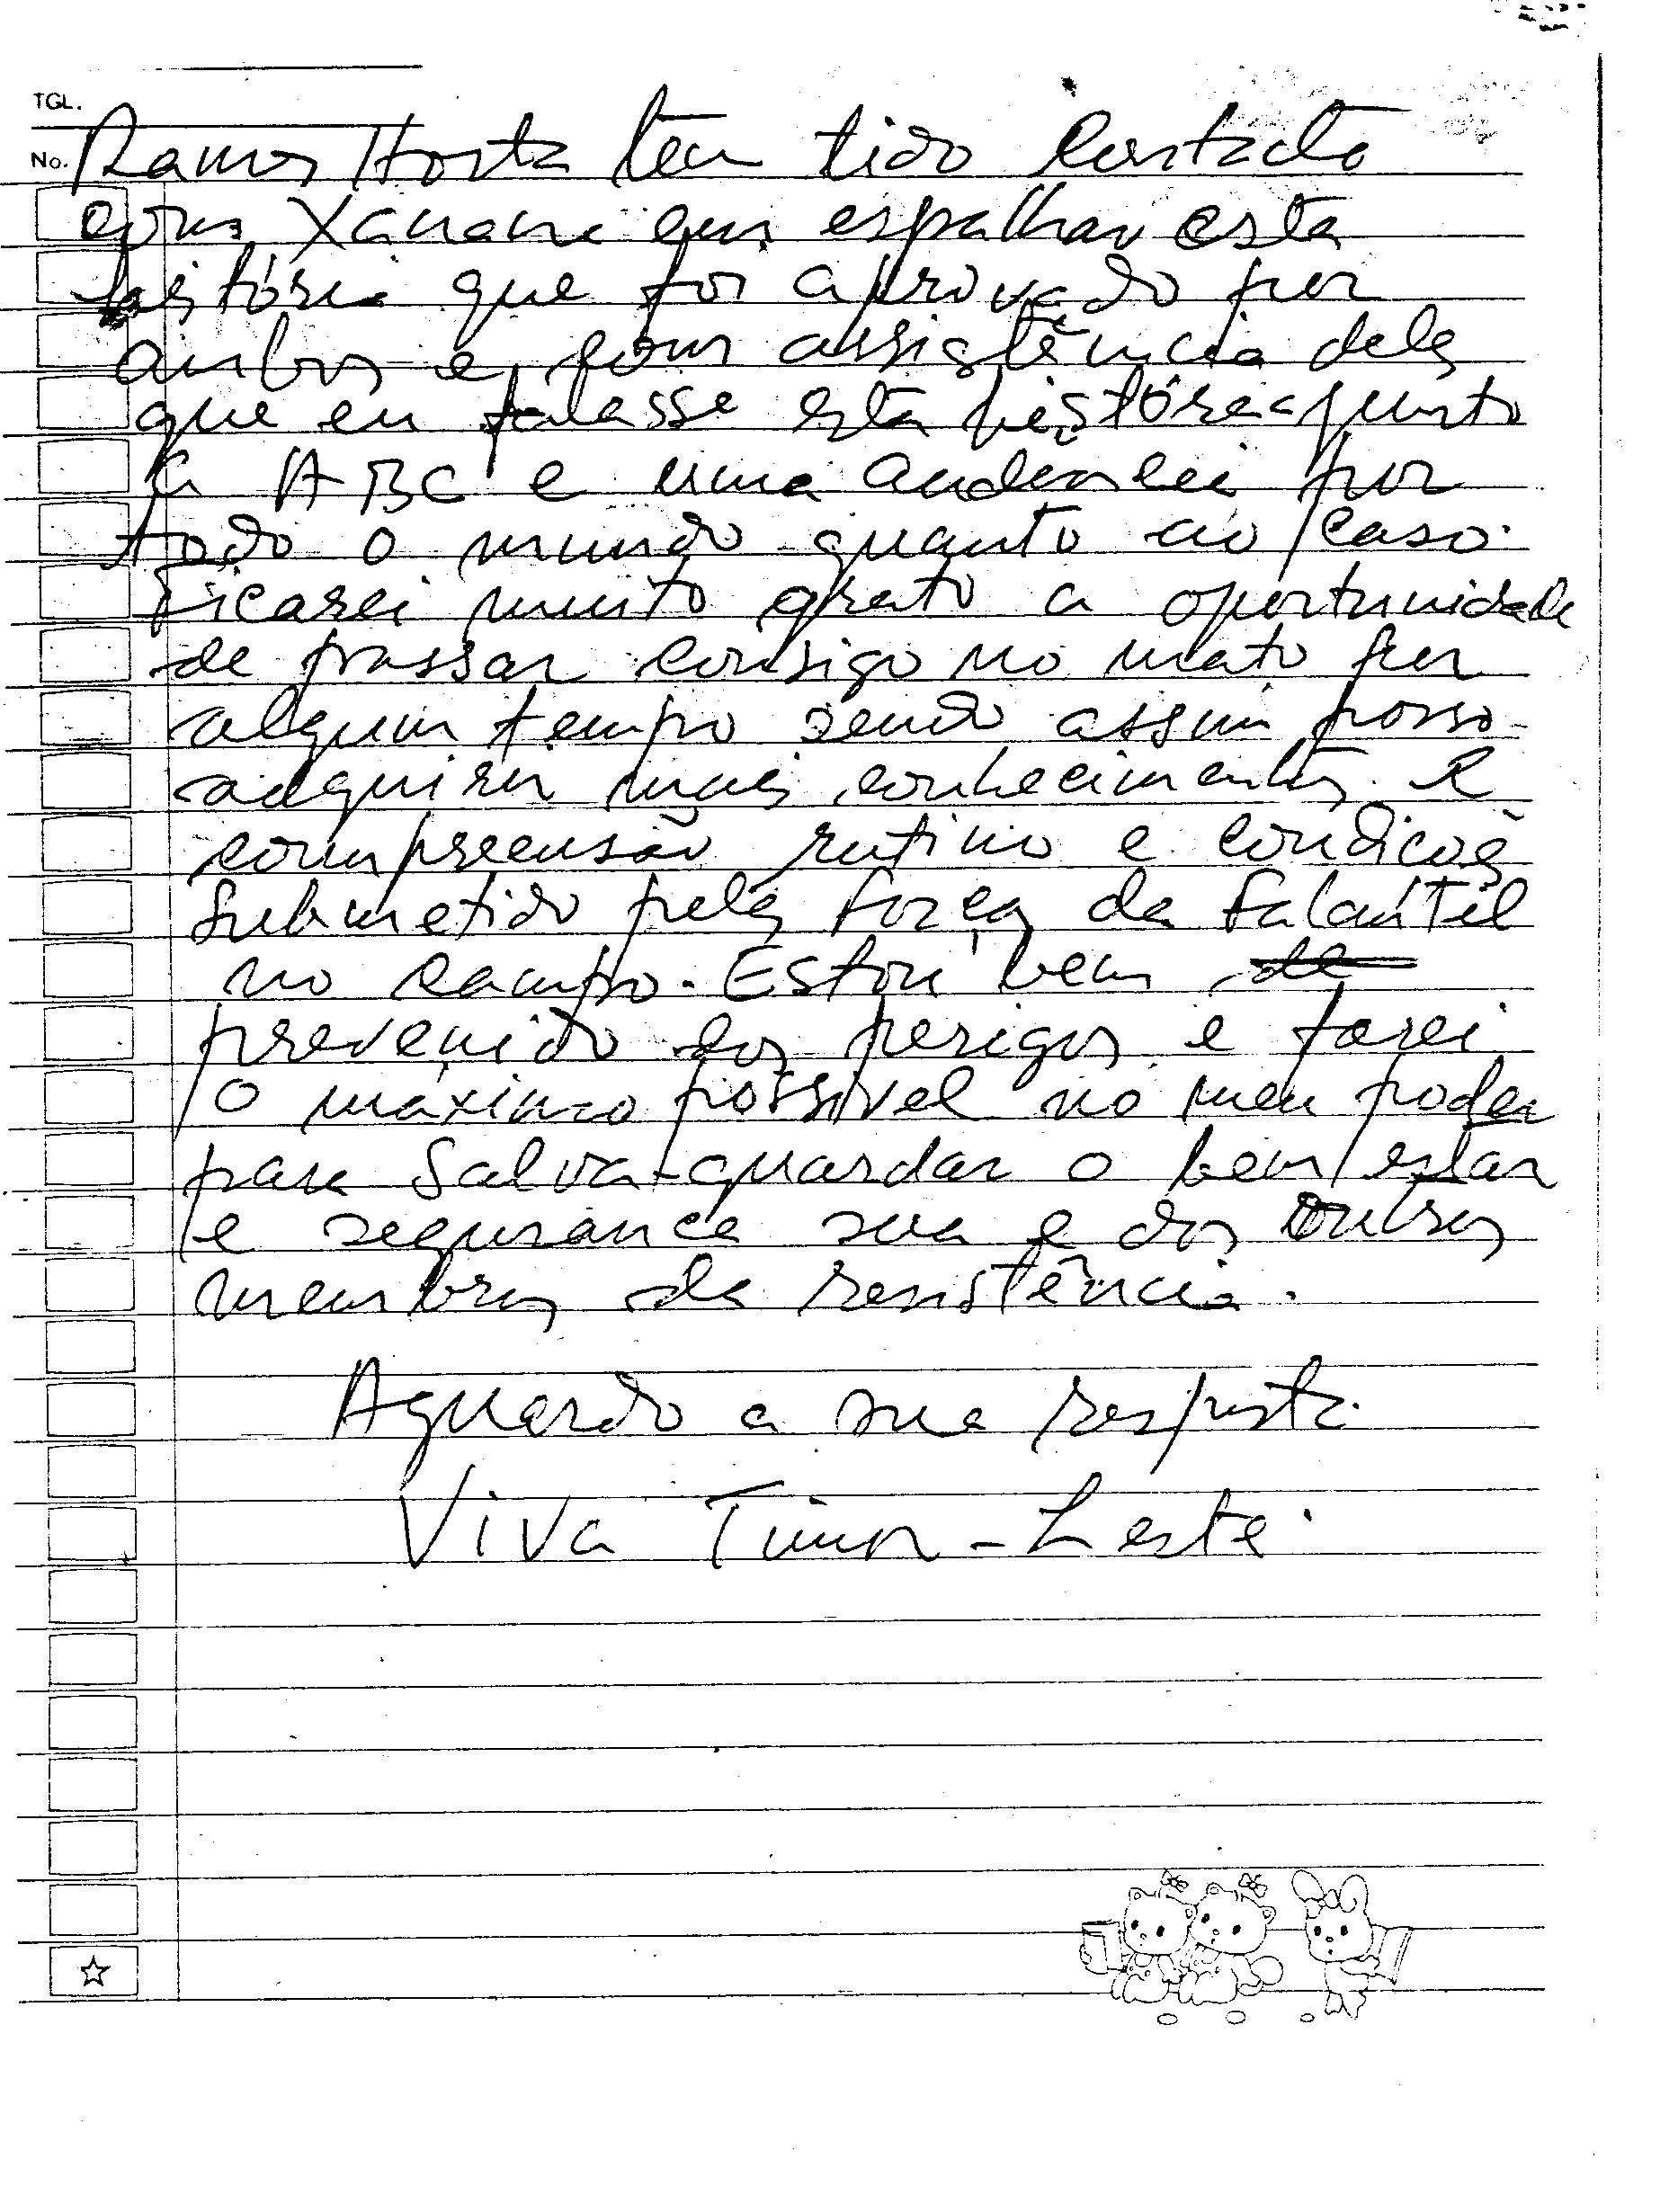 TGL.
No. Ramos Horta tem tido contacto
com Xanana em espalhar esta
história que foi aprovado por
ambos e com assistência deles
que eu falasse esta história junto
a ABC e uma audencia por
todo o mundo quanto ao caso.
Ficarei muito grato a oportunidade
de passar consigo no mato por
algum tempo sendo assim posso
adquirir mais conhecimentos e
compreensão rutino e condicoẽs
submetido pelas forças da Falantil
no campo. Estou bem de
prevenido dos perigos e farei
o máximo possível no meu poder
para Salva-guardar o bem estar
e segurança sua e dos outros
membros da resistência.
Aguardo a sua resposta.
Viva Timor-Leste.